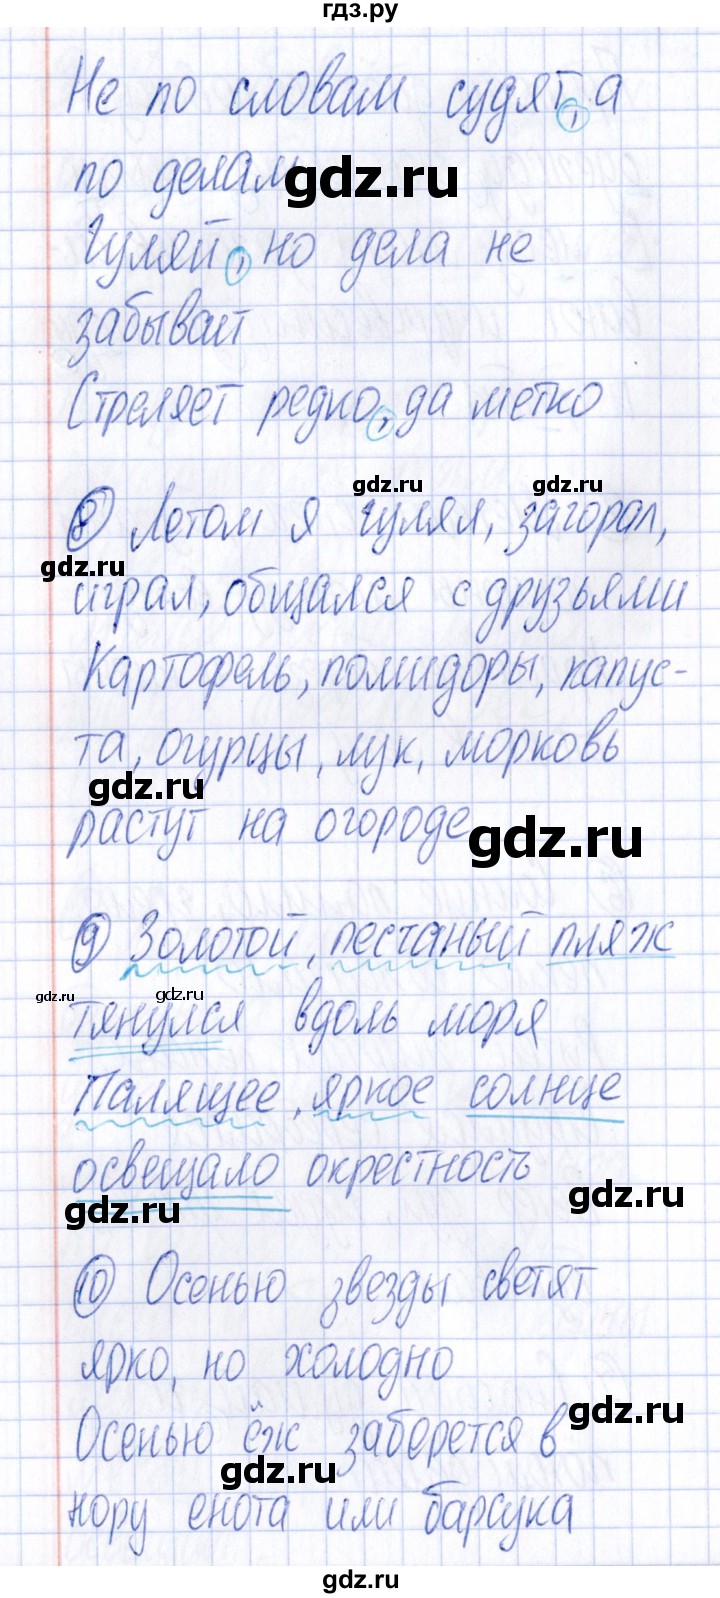 гдз.ру
Не по словам судят, а
по делам
gdz.ru
Гуляй, но дела не
забывай
Стреляет редко, да метко
gdz.ru
gdz.ru
8 Летом я гулял, загорал,
gdz.ru
играл, общался с друзьями
Картофель, помидоры, капус-
та, огурцы, лук, морковь
gdz.ru
растут на огороде
gdz.ru
9 Золотой, песчаный пляж
gdz.ru
gdz.ru
тянулся вдоль моря
Палящее, яркое солнце
освещало окрестность
gdz.ru
gdz.ru
10 Осенью звезды светят
ярко, но холодно
gdz.ru
Осенью ёж заберется в
gdz.ru
нору енота или барсука
gdz.ru